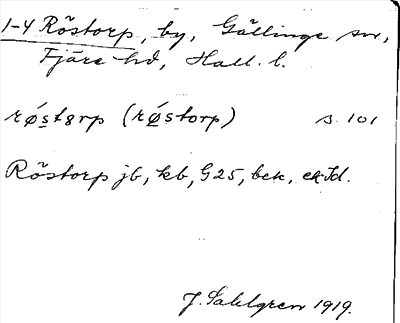 1-4 Röstorp, by, Gällinge sn,
Fjäre hd, Hall. l.
røstərp (røstorp) s. 101
Röstorp jb, kb, G25, bek, ek Jd.
J. Sahlgren 1919.